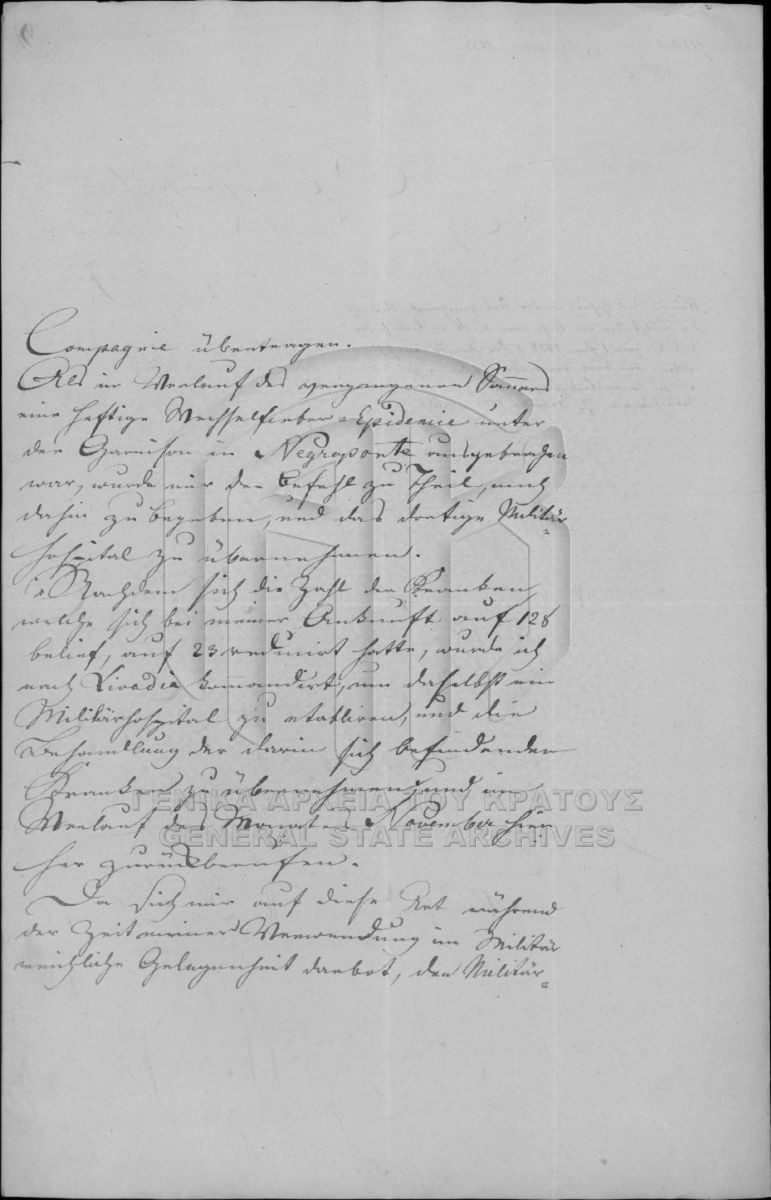 Compagnie übertragen.
Als im Verlauf des vergangenen Sommers
eine heftige Wechselfieber-Epidemie unter
der Garnison in Negroponte ausgebrochen
war, wurde mir der Befehl zu Theil, mich
dahin zu begeben, und das dortige Militär=
hospital zu übernehmen.
Nachdem sich die Zahl der Kranken,
welche sich bei meiner Ankunft auf 128
belief, auf 23 reducirt hatte, wurde ich
nach Livadia kommandirt, um daselbst ein
Militärhospital zu etabliren, und die
Behandlung der darin sich befindenden
Kranken zu übernehmen, und im
Verlauf des Monates November hier
her zurückberufen.
Da sich mir auf diese Art während
der Zeit meiner Verwendung im Militär
reichliche Gelegenheit darbot, den Militär=
ΓΕΝΙΚΑ ΑΡΧΕΙΑ ΤΟΥ ΚΡΑΤΟΥΣ
GENERAL STATE ARCHIVES